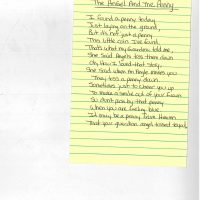 The Angel And The Penny
I found a penny today
Just laying on the ground,
But it's not just a penny
This little coin I've found.
That's what my Grandma told me,
She Said Angels toss them down
Oh, How I loved that story.
She Said when an Angle misses you
They toss a penny down
Sometimes just to cheer you up
To make a smile out of your frown
So don't pass by that penny
When you are feeling blue
It may be a penny from Heaven
That your guardian angel tossed to you!